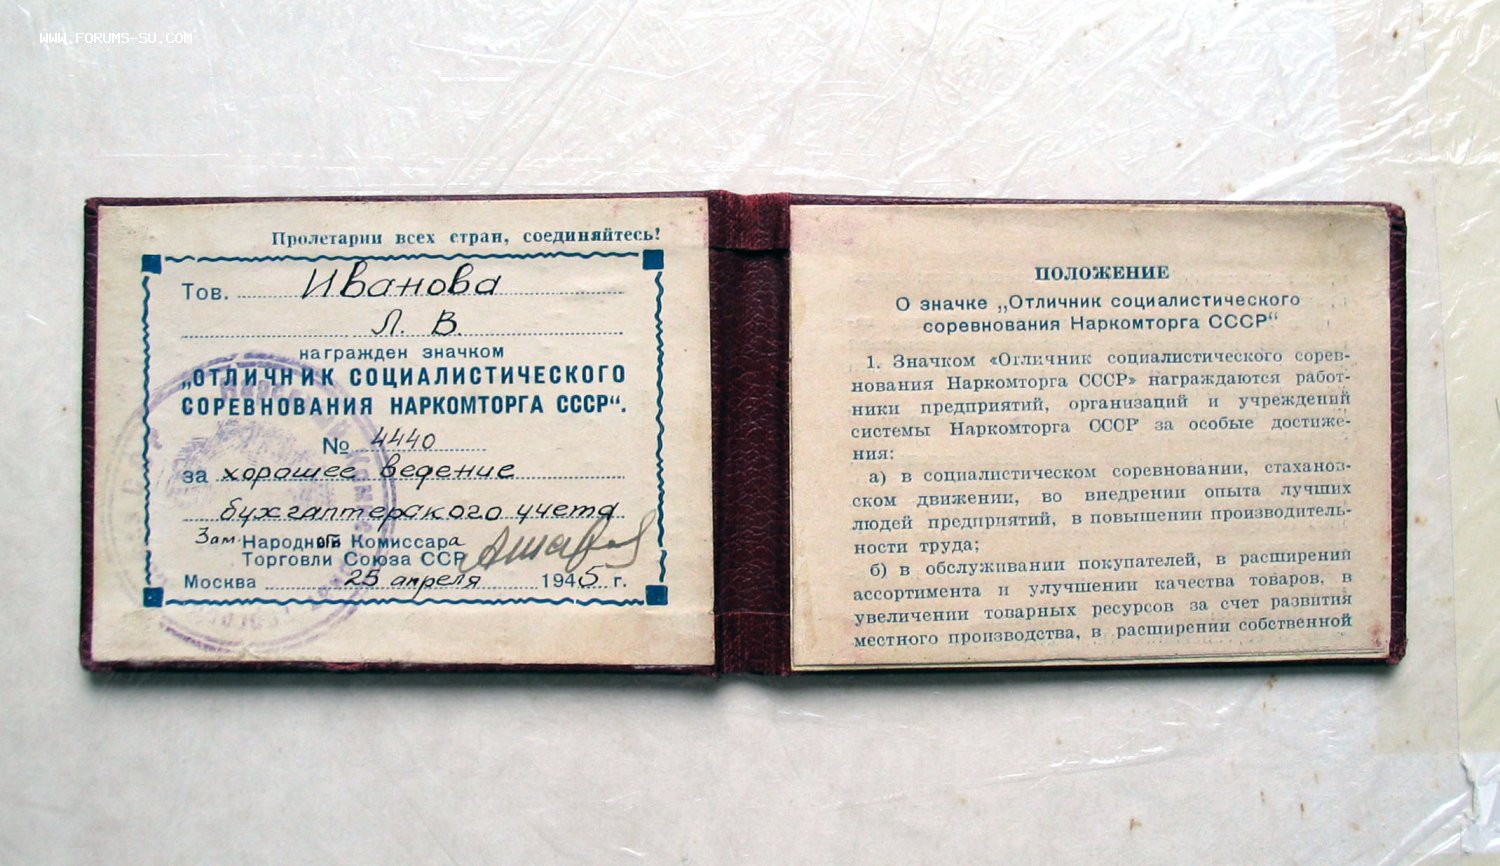 WWW.FORUMS-SU.COM
Пролетарии всех стран, соединяйтесь!
Тов. Иванова
Л. В.
награжден значком
„ОТЛИЧНИК СОЦИАЛИСТИЧЕСКОГО
СОРЕВНОВАНИЯ НАРКОМТОРГА СССР“.
№ 4440
за хорошее ведение
бухгалтерского учета
Зам. Народного Комиссара
Торговли Союза ССР
Москва 25 апреля 1945 г.
ПОЛОЖЕНИЕ
О значке „Отличник социалистического
соревнования Наркомторга СССР“
1. Значком «Отличник социалистического сорев-
нования Наркомторга СССР» награждаются работ-
ники предприятий, организаций и учреждений
системы Наркомторга СССР за особые достиже-
ния:
а) в социалистическом соревновании, стаханов-
ском движении, во внедрении опыта лучших
людей предприятий, в повышении производитель-
ности труда;
б) в обслуживании покупателей, в расширении
ассортимента и улучшении качества товаров, в
увеличении товарных ресурсов за счет развития
местного производства, в расширении собственной